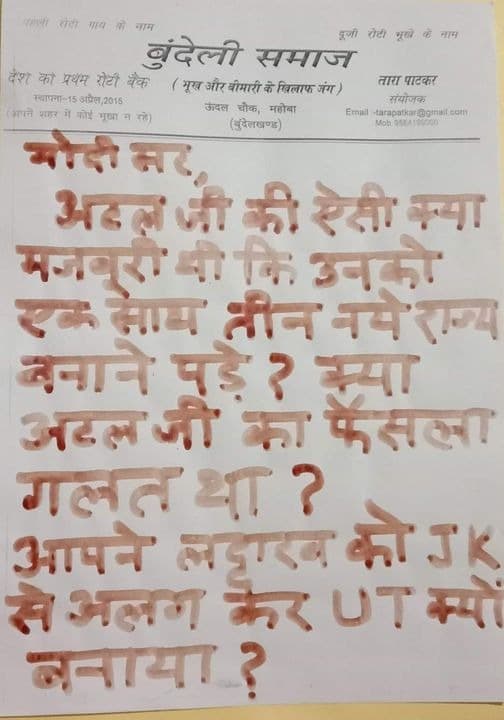 पहली रोटी गाय के नाम
दूजी रोटी भूखे के नाम
बुंदेली समाज
देश का प्रथम रोटी बैंक
( भूख और बीमारी के खिलाफ जंग )
तारा पाटकर
स्थापना-15 अप्रैल,2015
ऊदल चौक, महोबा
संयोजक
(अपने शहर में कोई भूखा न रहे)
(बुंदेलखण्ड)
Email -tarapatkar@gmail.com
Mob.
मोदी सर,
अटल जी की ऐसी क्या
मजबूरी थी कि उनको
एक साथ तीन नये राज्य
बनाने पड़े ? क्या
अटल जी का फैसला
गलत था ?
आपने लद्दाख को JK
से अलग कर UT क्यों
बनाया ?